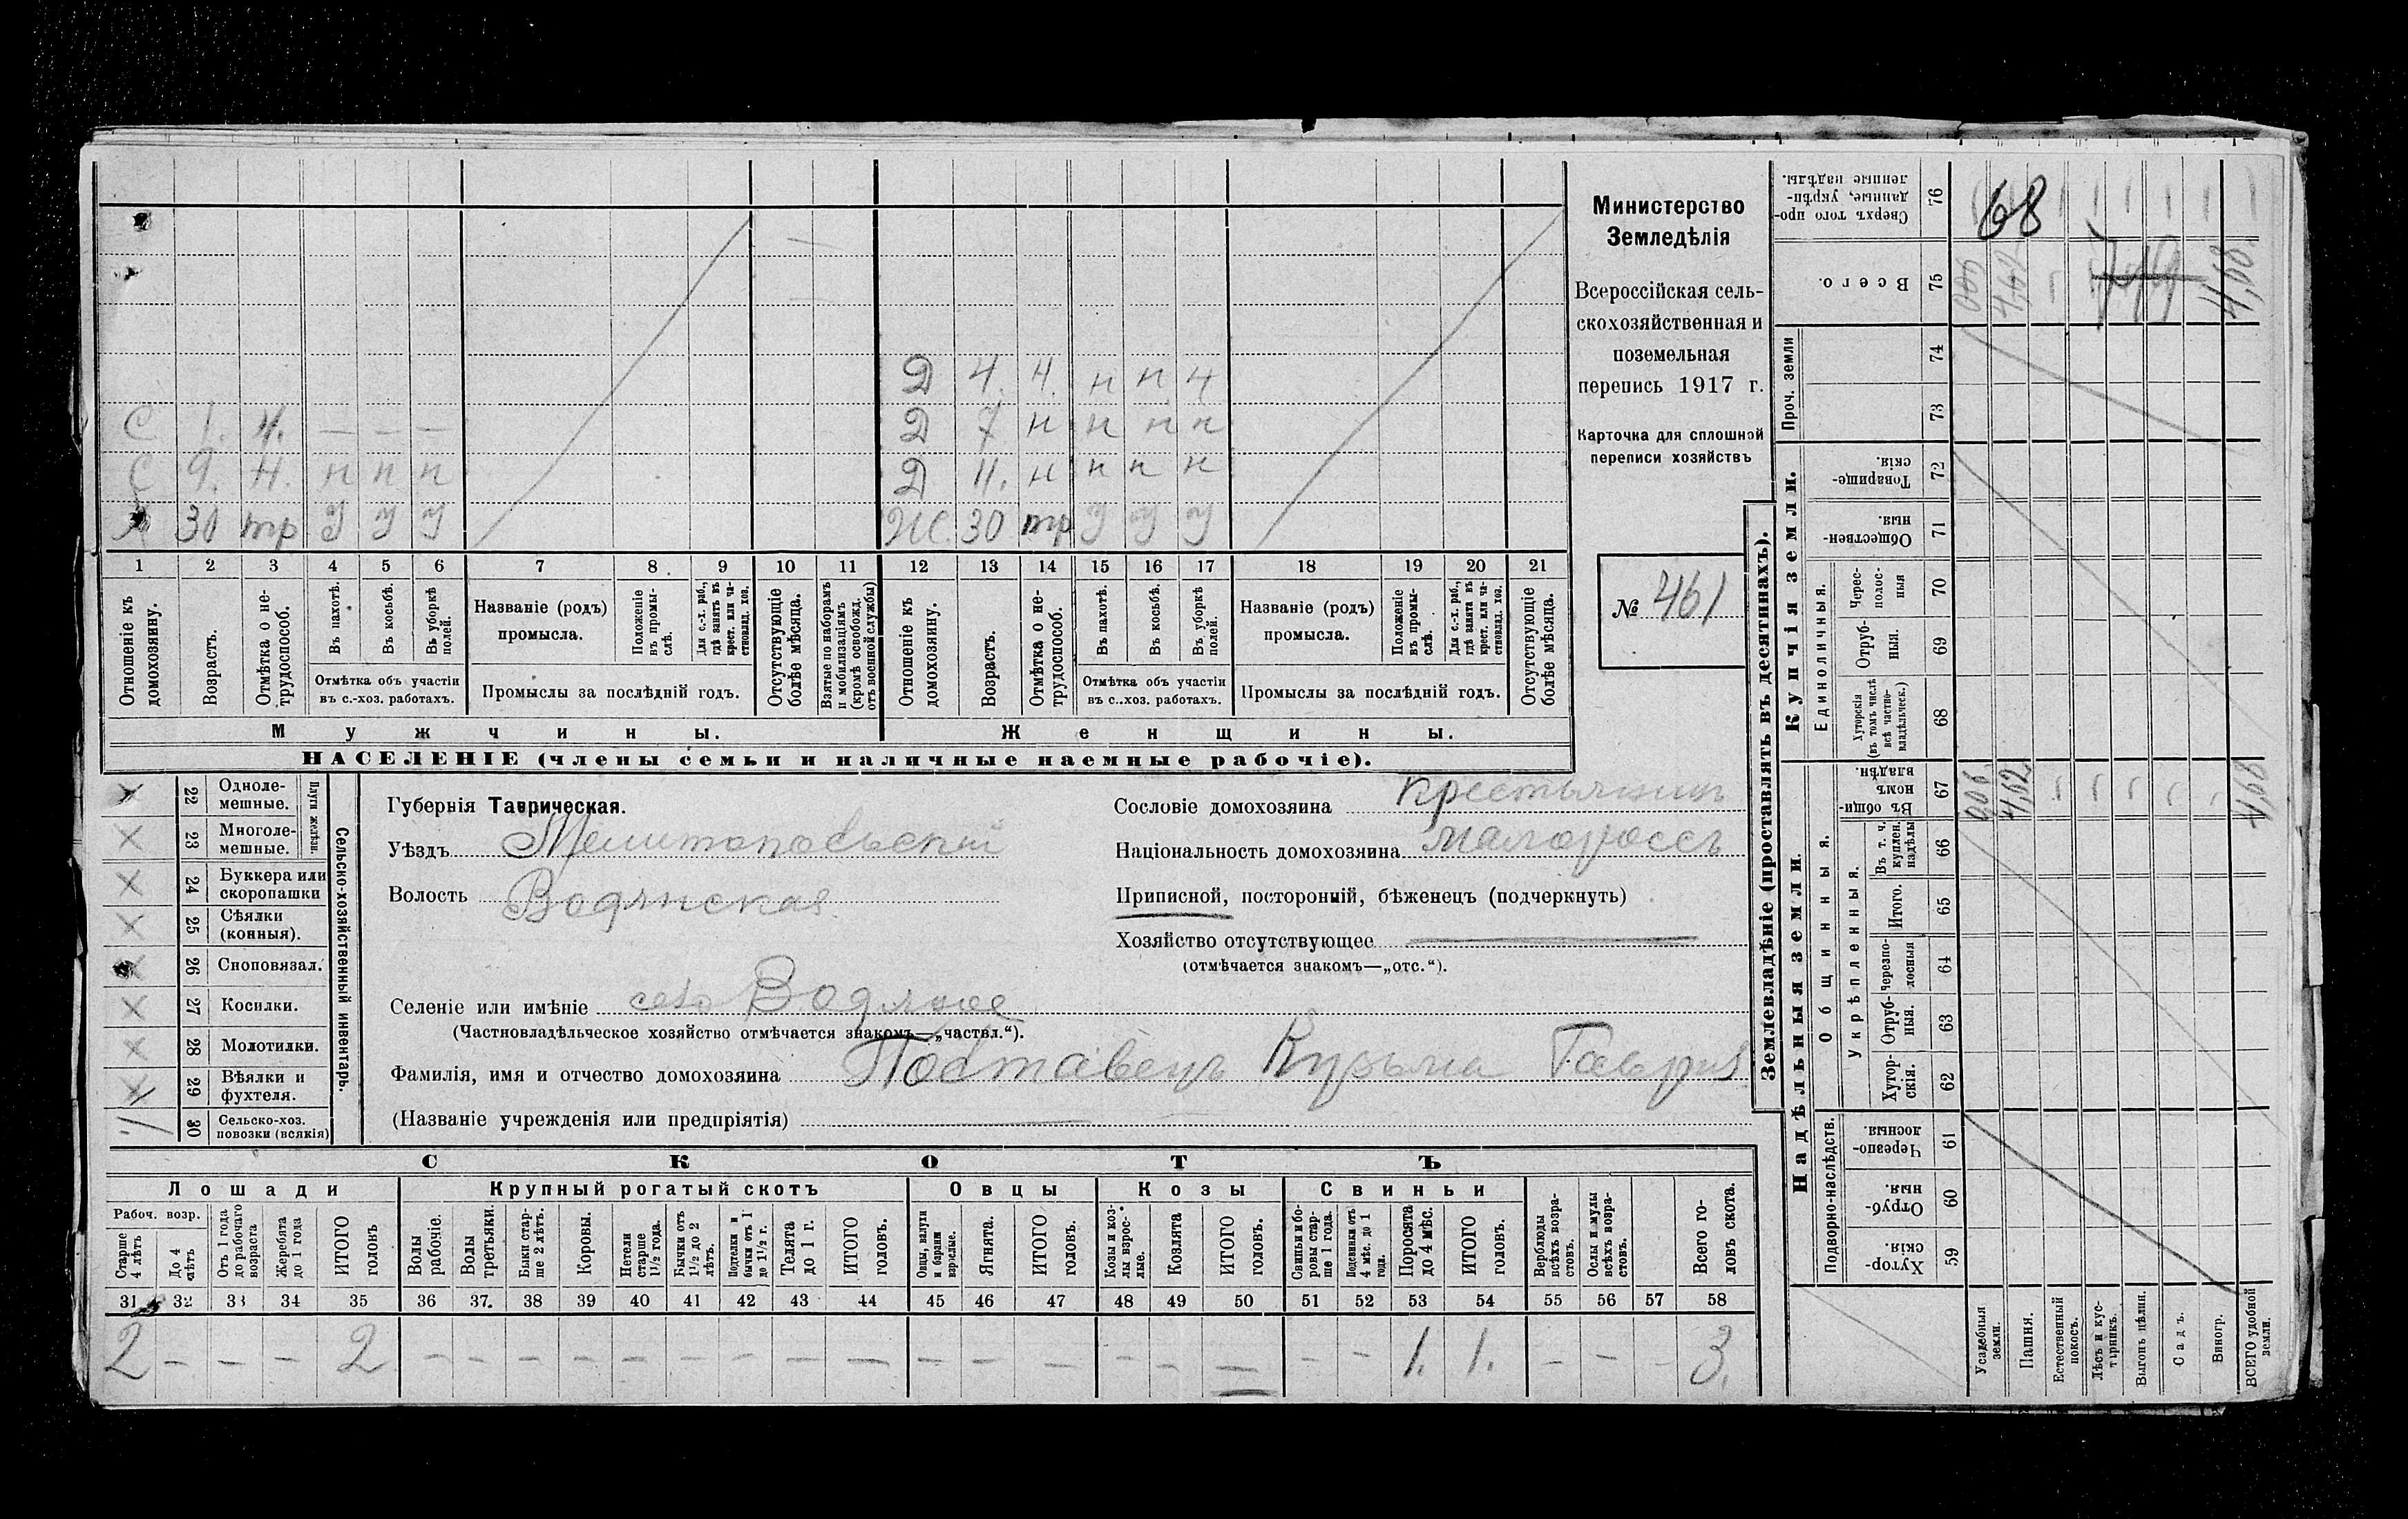 Министерство
Земледѣлія
Всероссійская сель-
скохозяйственная и
поземельная
перепись 1917 г.
Карточка для сплошной
переписи хозяйствъ
№ 461
Д 4. Н. н н н
С 1. Н. — — —
Д 7 н н н н
С 9. Н. н н н
Д 11. н н н н
30 тр У У У
Ж. 30 тр У У У
1 2 3 4 5 6 7 8 9 10 11 12 13 14 15 16 17 18 19 20 21
Отношеніе къ домохозяину.
Возрастъ.
Отмѣтка о не-трудоспособ.
Въ пахотѣ.
Въ косьбѣ.
Въ уборкѣ полей.
Отмѣтка объ участіи
въ с.-хоз. работахъ.
Названіе (родъ)
промысла.
Положеніе въ промы-слѣ.
Для с.-х. раб., гдѣ занятъ въ крест. или ча-стновлад. хоз.
Промыслы за послѣдній годъ.
Отсутствующіе болѣе мѣсяца.
Взятые по наборамъ и мобилизаціямъ (кромѣ освобожд. отъ военной службы)
Отношеніе къ домохозяину.
Возрастъ.
Отмѣтка о не-трудоспособ.
Въ пахотѣ.
Въ косьбѣ.
Въ уборкѣ полей.
Отмѣтка объ участіи
въ с..хоз. работахъ.
Названіе (родъ)
промысла.
Положеніе въ промы-слѣ.
Для с.-х. раб., гдѣ занята въ крест. или ча-стновлад. хоз.
Промыслы за послѣдній годъ.
Отсутствующіе болѣе мѣсяца.
Мужчины.
Женщины.
НАСЕЛЕНІЕ (члены семьи и наличные наемные рабочіе).
22 Одноле-мешные.
23 Многоле-мешные.
Плуги желѣзн.
24 Буккера или скоропашки
25 Сѣялки (конныя).
26 Сноповязал.
27 Косилки.
28 Молотилки.
29 Вѣялки и фухтеля.
30 Сельско-хоз. повозки (всякія)
1
Сельско-хозяйственный инвентарь.
Губернія Таврическая.
Уѣздъ Мелитопольскій
Волость Водянская
Селеніе или имѣніе село Водяное
(Частновладѣльческое хозяйство отмѣчается знакомъ—„частвл.“).
Фамилія, имя и отчество домохозяина Поставецъ Кузьма Гаврил
(Названіе учрежденія или предпріятія)
Сословіе домохозяина крестьянинъ
Національность домохозяина малороссъ
Приписной, посторонній, бѣженецъ (подчеркнуть)
Хозяйство отсутствующее
(отмѣчается знакомъ—„отс.“).
СКОТЪ
Лошади
Крупный рогатый скотъ
Овцы
Козы
Свиньи
Рабоч. возр.
Старше 4 лѣтъ
До 4 лѣтъ
Отъ 1 года до рабочаго возраста
Жеребята до 1 года
ИТОГО головъ
Волы рабочіе.
Волы третьяки.
Быки стар-ше 2 лѣтъ.
Коровы.
Нетели старше 1½ года.
Бычки отъ 1½ до 2 лѣтъ.
Подтелки и бычки отъ 1 до 1½ г.
Телята до 1 г.
ИТОГО головъ.
Овцы, валухи и бараны взрослые.
Ягнята.
ИТОГО головъ.
Козы и коз-лы взрос-лые.
Козлята
ИТОГО головъ.
Свиньи и бо-ровы стар-ше 1 года.
Подсвинки отъ 4 мѣс. до 1 года.
Поросята до 4 мѣс.
ИТОГО головъ.
Верблюды всѣхъ возра-стовъ.
Ослы и мулы всѣхъ возра-стовъ.
Всего го-ловъ скота.
31 32 33 34 35 36 37. 38 39 40 41 42 43 44 45 46 47 48 49 50 51 52 53 54 55 56 57 58
2 — — — 2 — — — — — — — — — — — — — — — — — 1. 1. — — — 3.
Землевладѣніе (проставлять въ десятинахъ).
Купчія земли.
Надѣльныя земли.
Сверхъ того про-данные, укрѣп-ленные надѣлы. 76
68
Всего. 75
4,68
Проч. земли
74
73
Товарище-скія. 72
Обществен-ныя. 71
Единоличныя.
Черес-полос-ныя 70
Отруб-ныя. 69
Хуторскія (въ томъ числѣ всѣ частно-владѣльческ.) 68
Общинныя.
Въ общин-номъ владѣн. 67
0,06 4,62 4,68
Укрѣпленныя.
Въ т. ч. куплен. надѣлы 66
Итого. 65
Черезпо-лосныя 64
Отруб-ныя. 63
Хутор-скія. 62
Подворно-наслѣдств.
Черезпо-лосныя. 61
Отруб-ныя. 60
Хутор-скія. 59
Усадебныя земли.
Пашня.
Естественный покосъ.
Лѣсъ и кус-тарникъ.
Выгонъ цѣлин.
Садъ.
Виногр.
ВСЕГО удобной земли.